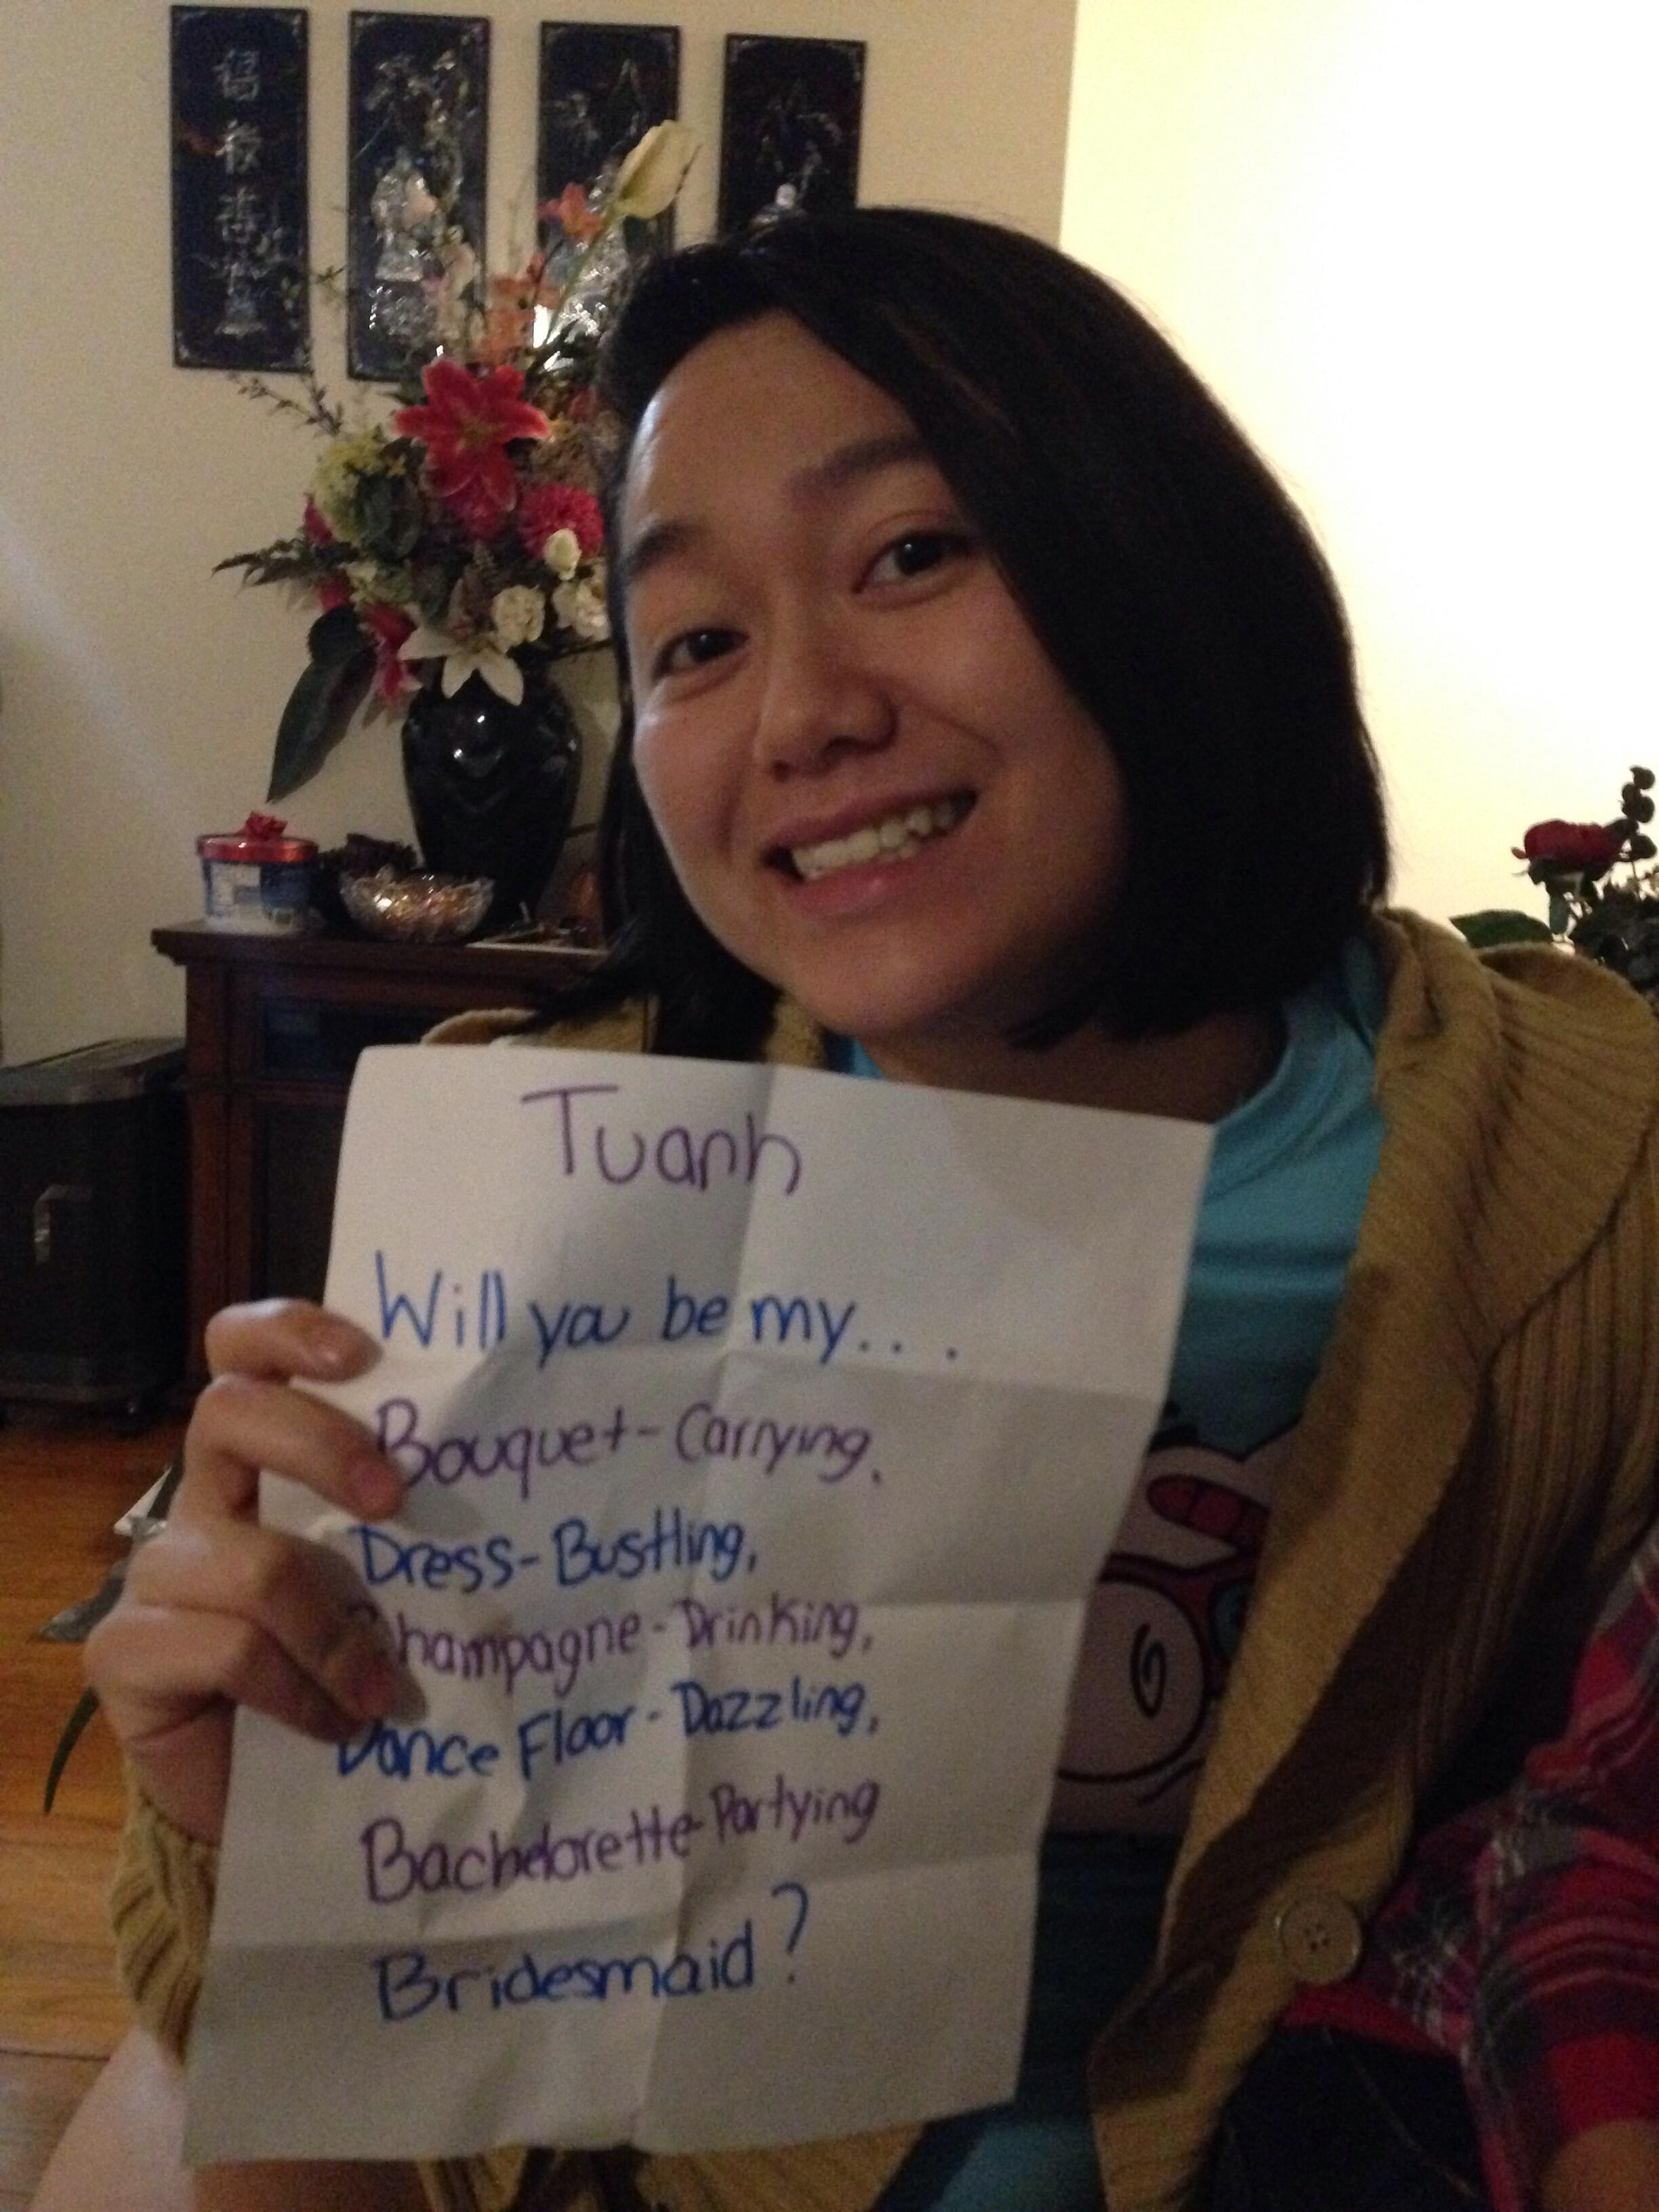 Tuanh
Will you be my....
Bouquet-Carrying,
Dress-Bustling,
Champagne-Drinking,
Dance Floor-Dazzling,
Bachelorette-Partying
Bridesmaid?